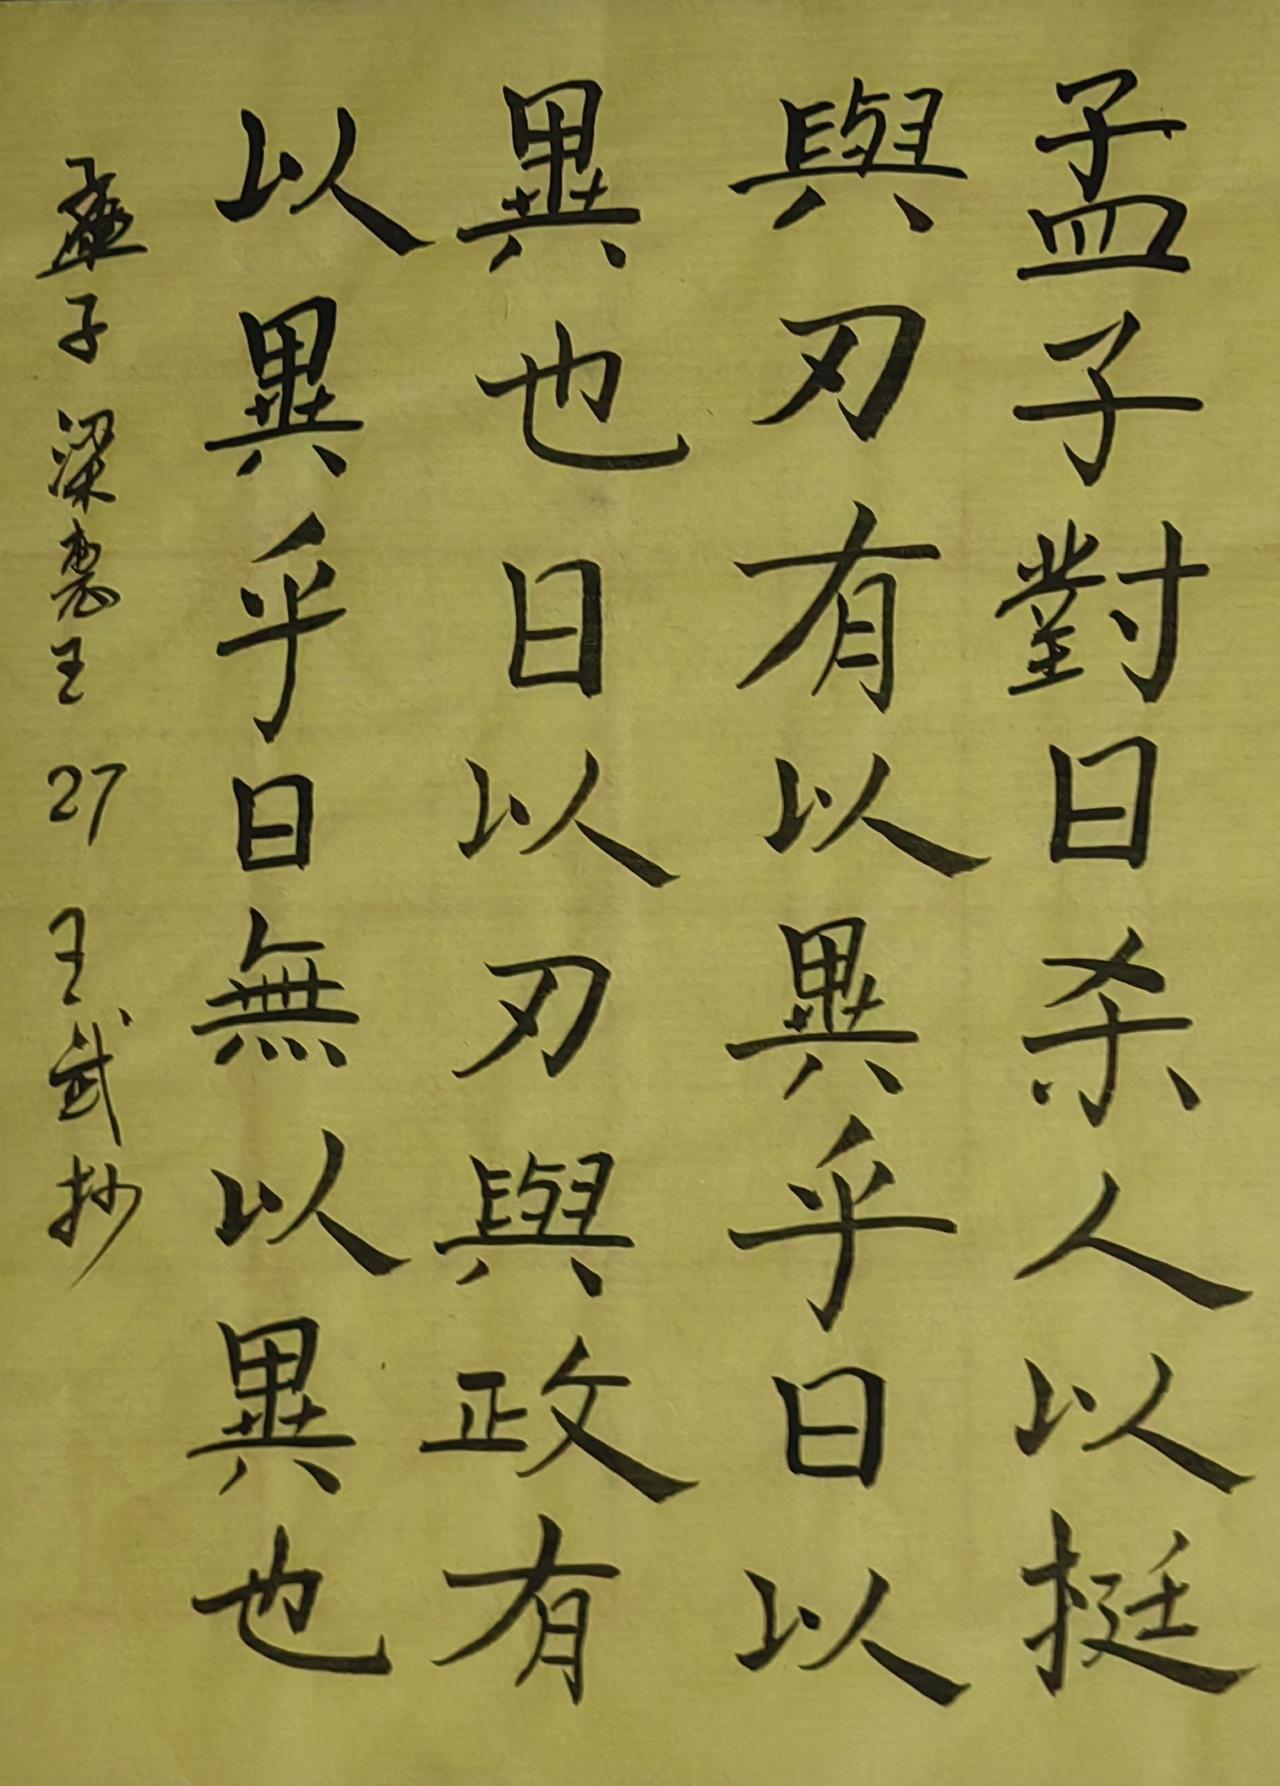 孟子對曰杀人以挺
與刃有以異乎曰以
異也曰以刃與政有
以異乎曰無以異也
孟子 梁惠王 27 王武抄